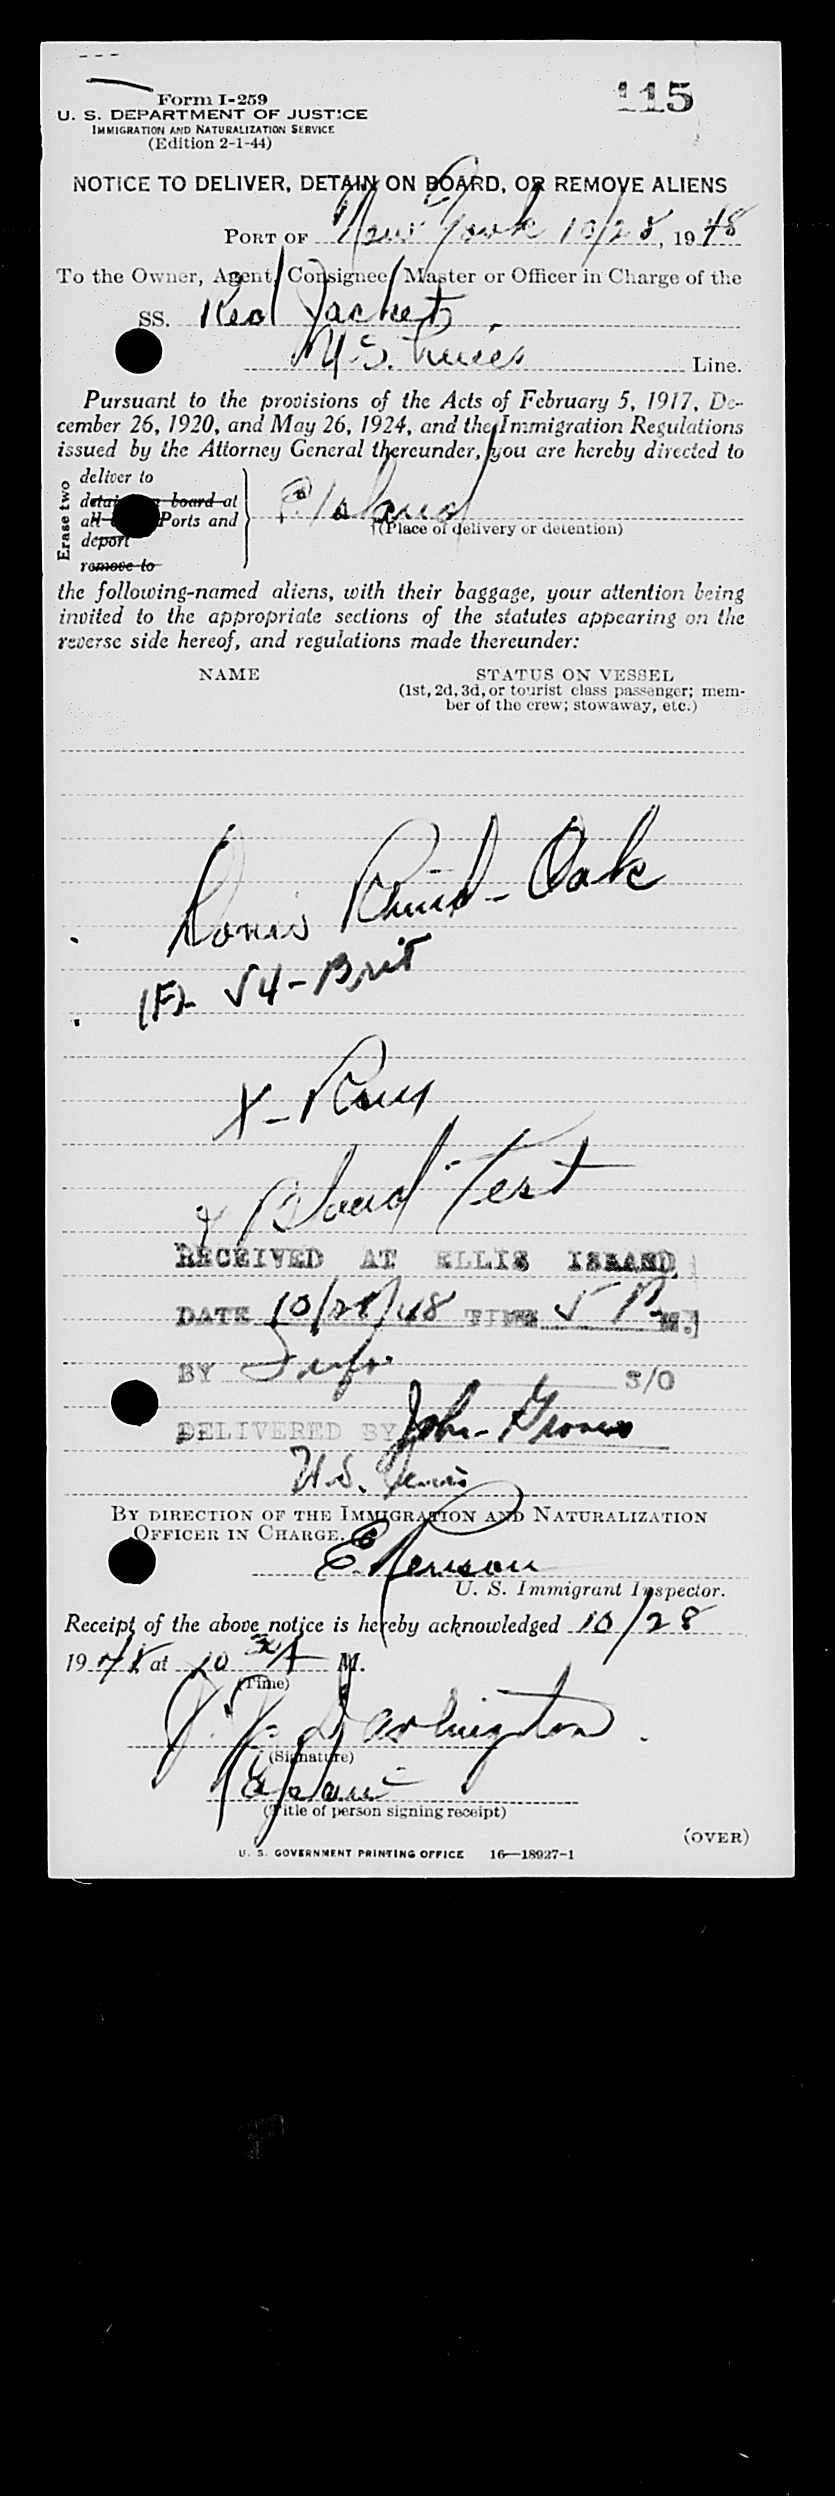 115
Form I-259
U. S. DEPARTMENT OF JUSTICE
IMMIGRATION AND NATURALIZATION SERVICE
(Edition 2-1-44)
NOTICE TO DELIVER, DETAIN ON BOARD, OR REMOVE ALIENS
PORT OF New York 10/28, 1948
To the Owner, Agent, Consignee, Master or Officer in Charge of the
SS. Red Jacket
U.S. Lines Line.
Pursuant to the provisions of the Acts of February 5, 1917, De-
cember 26, 1920, and May 26, 1924, and the Immigration Regulations
issued by the Attorney General thereunder, you are hereby directed to
Erase two
deliver to
detain on board at
all Ports and
deport
remove to
E. Island
(Place of delivery or detention)
the following-named aliens, with their baggage, your attention being
invited to the appropriate sections of the statutes appearing on the
reverse side hereof, and regulations made thereunder:
NAME STATUS ON VESSEL
(1st, 2d, 3d, or tourist class passenger; mem-
ber of the crew; stowaway, etc.)
Oak
(F) 54 - Brit
X-Ray
& Blood Test
RECEIVED AT ELLIS ISLAND
DATE 10/28/48 TIME 5 P M.
BY S/O
DELIVERED BY John
U.S. Lines
BY DIRECTION OF THE IMMIGRATION AND NATURALIZATION
OFFICER IN CHARGE.
E.
U. S. Immigrant Inspector.
Receipt of the above notice is hereby acknowledged 10/28
1948 at 10 30 A M.
(Time)
Washington
(Signature)
(Title of person signing receipt)
(OVER)
U. S. GOVERNMENT PRINTING OFFICE 16—18927-1